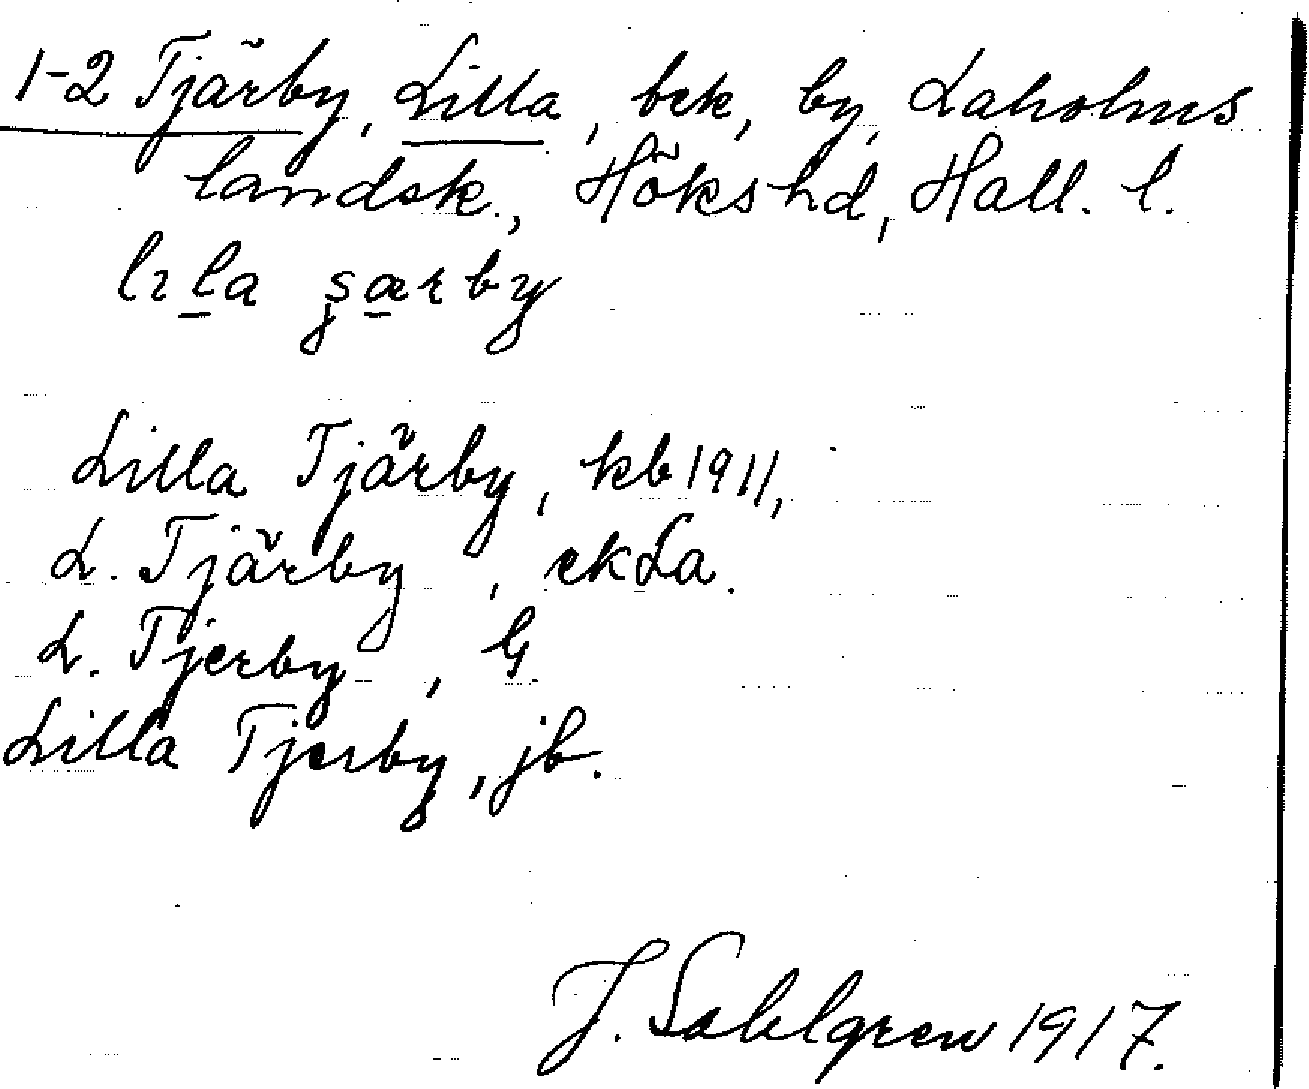 1-2 Tjärby, Lilla, bek, by, Laholms
landsk., Höks hd, Hall. l.
lɩla şærby
Lilla Tjärby, kb 1911,
L. Tjärby, ekLa.
L. Tjerby, G
Lilla Tjerby, jb.
J. Sahlgren 1917.